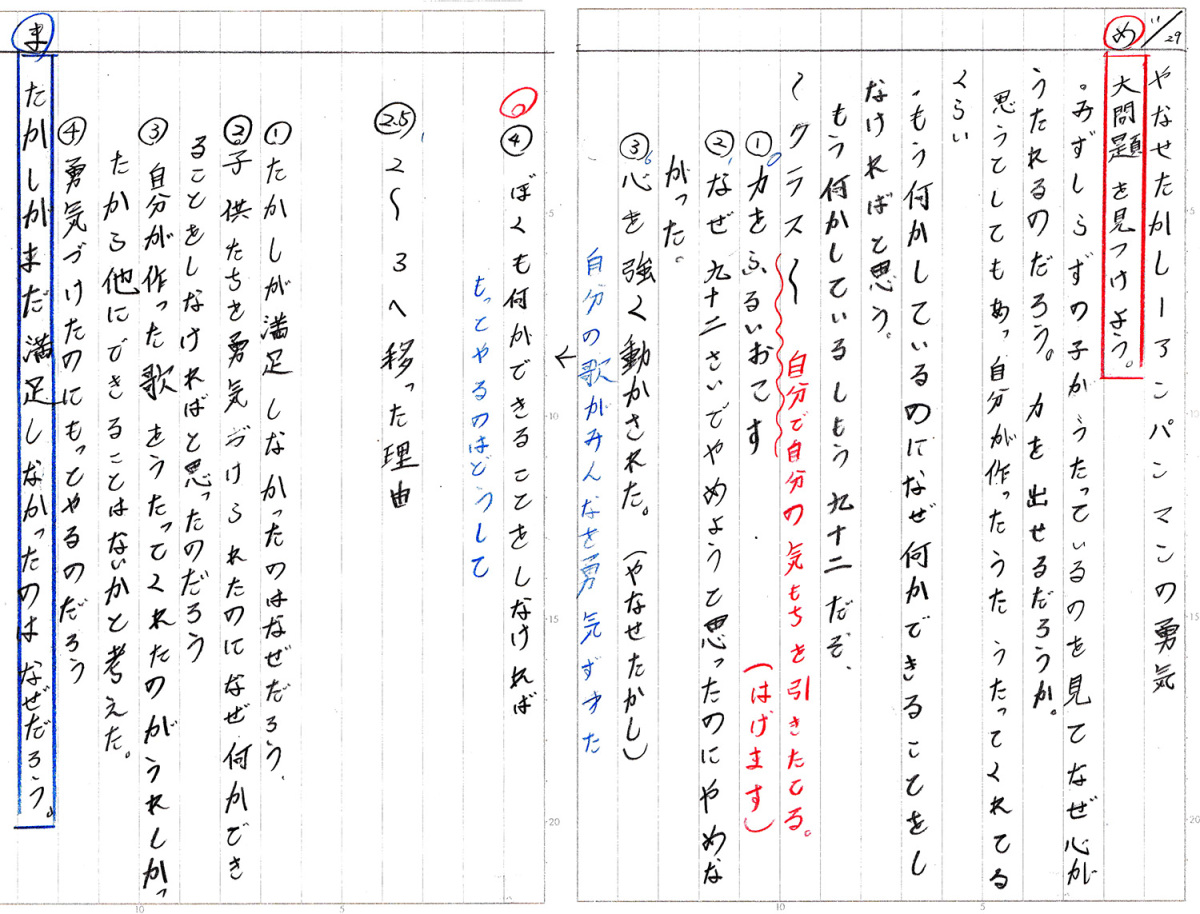 11/29
やなせたかしーアンパンマンの勇気
め 大問題を見つけよう。
・みずしらずの子がうたっているのを見て、なぜ心が
うたれるのだろう。力を出せるだろうか。
思うてしてもあっ自分が作ったうたうたってくれてる
くらい
・もう何かしているのになぜ何かできることをし
なければと思う。
もう何かしているしもう九十二だぞ、
〜クラス〜 自分で自分の気もちを引きたてる。
①力をふるいおこす (はげます)
②なぜ九十二さいでやめようと思ったのにやめな
がった。
③心を強く動かされた。(やなせたかし)
自分の歌がみんなを勇気ずけた
←
もっとやるのはどうして
④ぼくも何ができることをしなければ
②.5 2〜3へ移った理由
①たかしが満足しなかったのはなぜだろう、
②子供たちを勇気づけられたのになぜ何かでき
ることをしなければと思ったのだろう
③自分が作った歌をうたってくれたのがうれしかっ
たから他にできることはないかと考えた。
④勇気づけたのにもってやるのだろう
ま たかしがまだ満足しなかったのはなぜだろう。
5
10
15
20
5
10
15
20
5
10
5
10